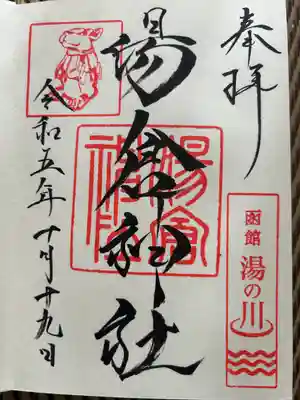 奉拝
函館
湯の川
湯倉神社
令和五年十月十九日